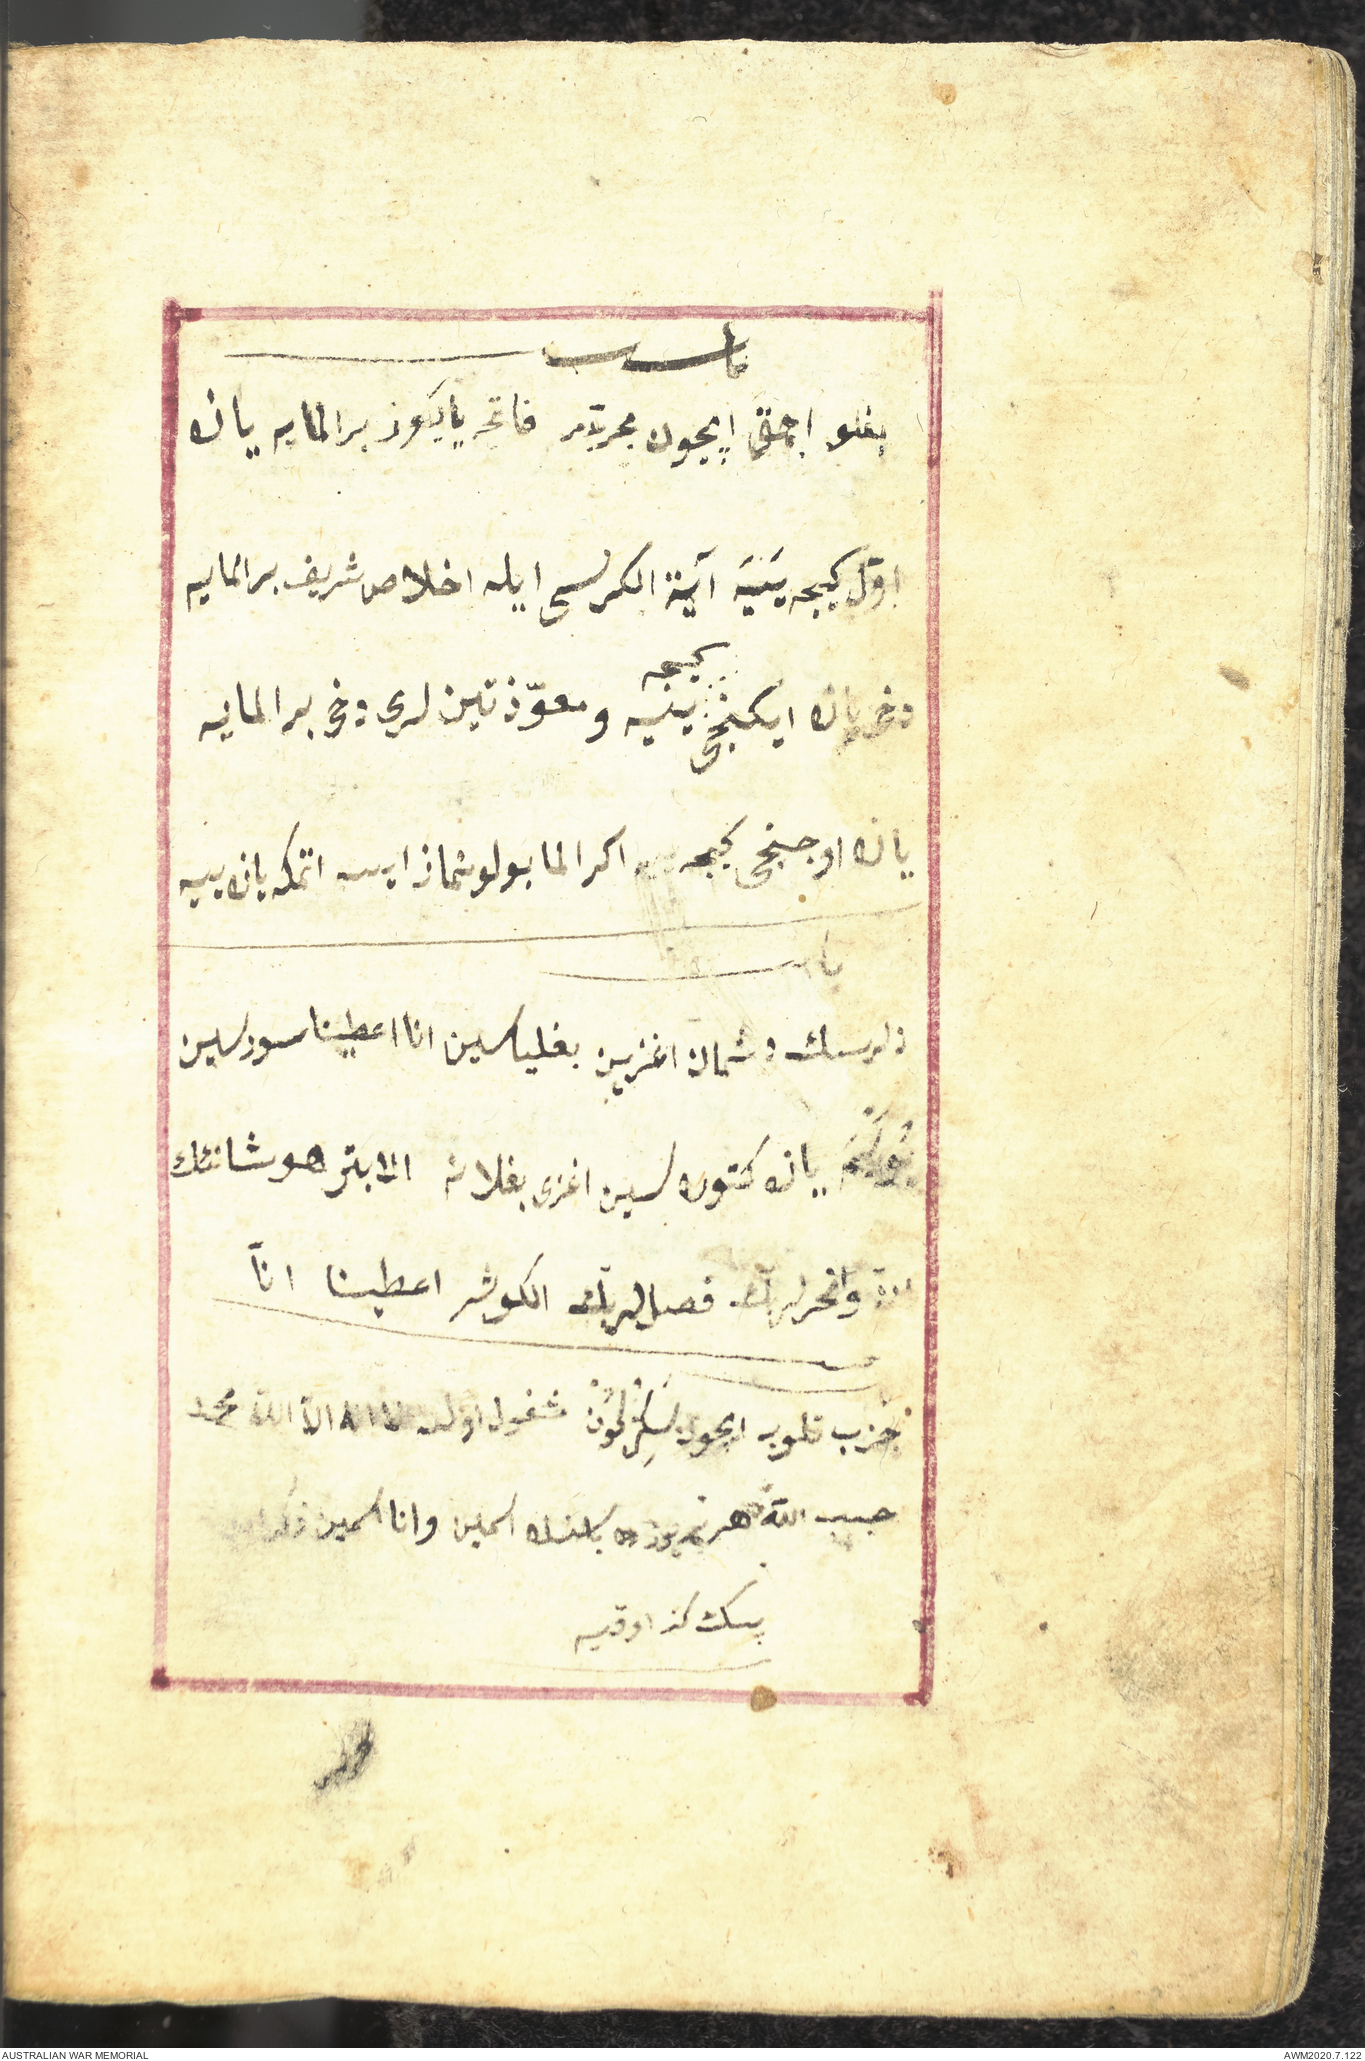 باب
بغلو اچمق ایچون مجربدر فاتحه یایکوز بر المایه یازه
اوّل کیجه یَنیَه آیة الکرسی ایله اخلاص شریف بر المایه
دخی یازه ایکنجی کیجه ینیه و معوّذتین لری دخی بر المایه
یازه اوجنجی کیجه اکر الما بولونماز ایسه اتمکه یازه ییه
باب
دلرسك دشمان اغزین بغلیاسین انا اعطینا سورسین
یازه کتوره سین اغزی بغلانه الابتر هو شانئك
وانحر لربك فصل لربك الکوثر اعطینا انّا
جزب قلوب ایچون مشغول اولـ الّا الله محمد
حبیب الله هر وانا
بیك کز اوقیه
AUSTRALIAN WAR MEMORIAL
AWM2020.7.122